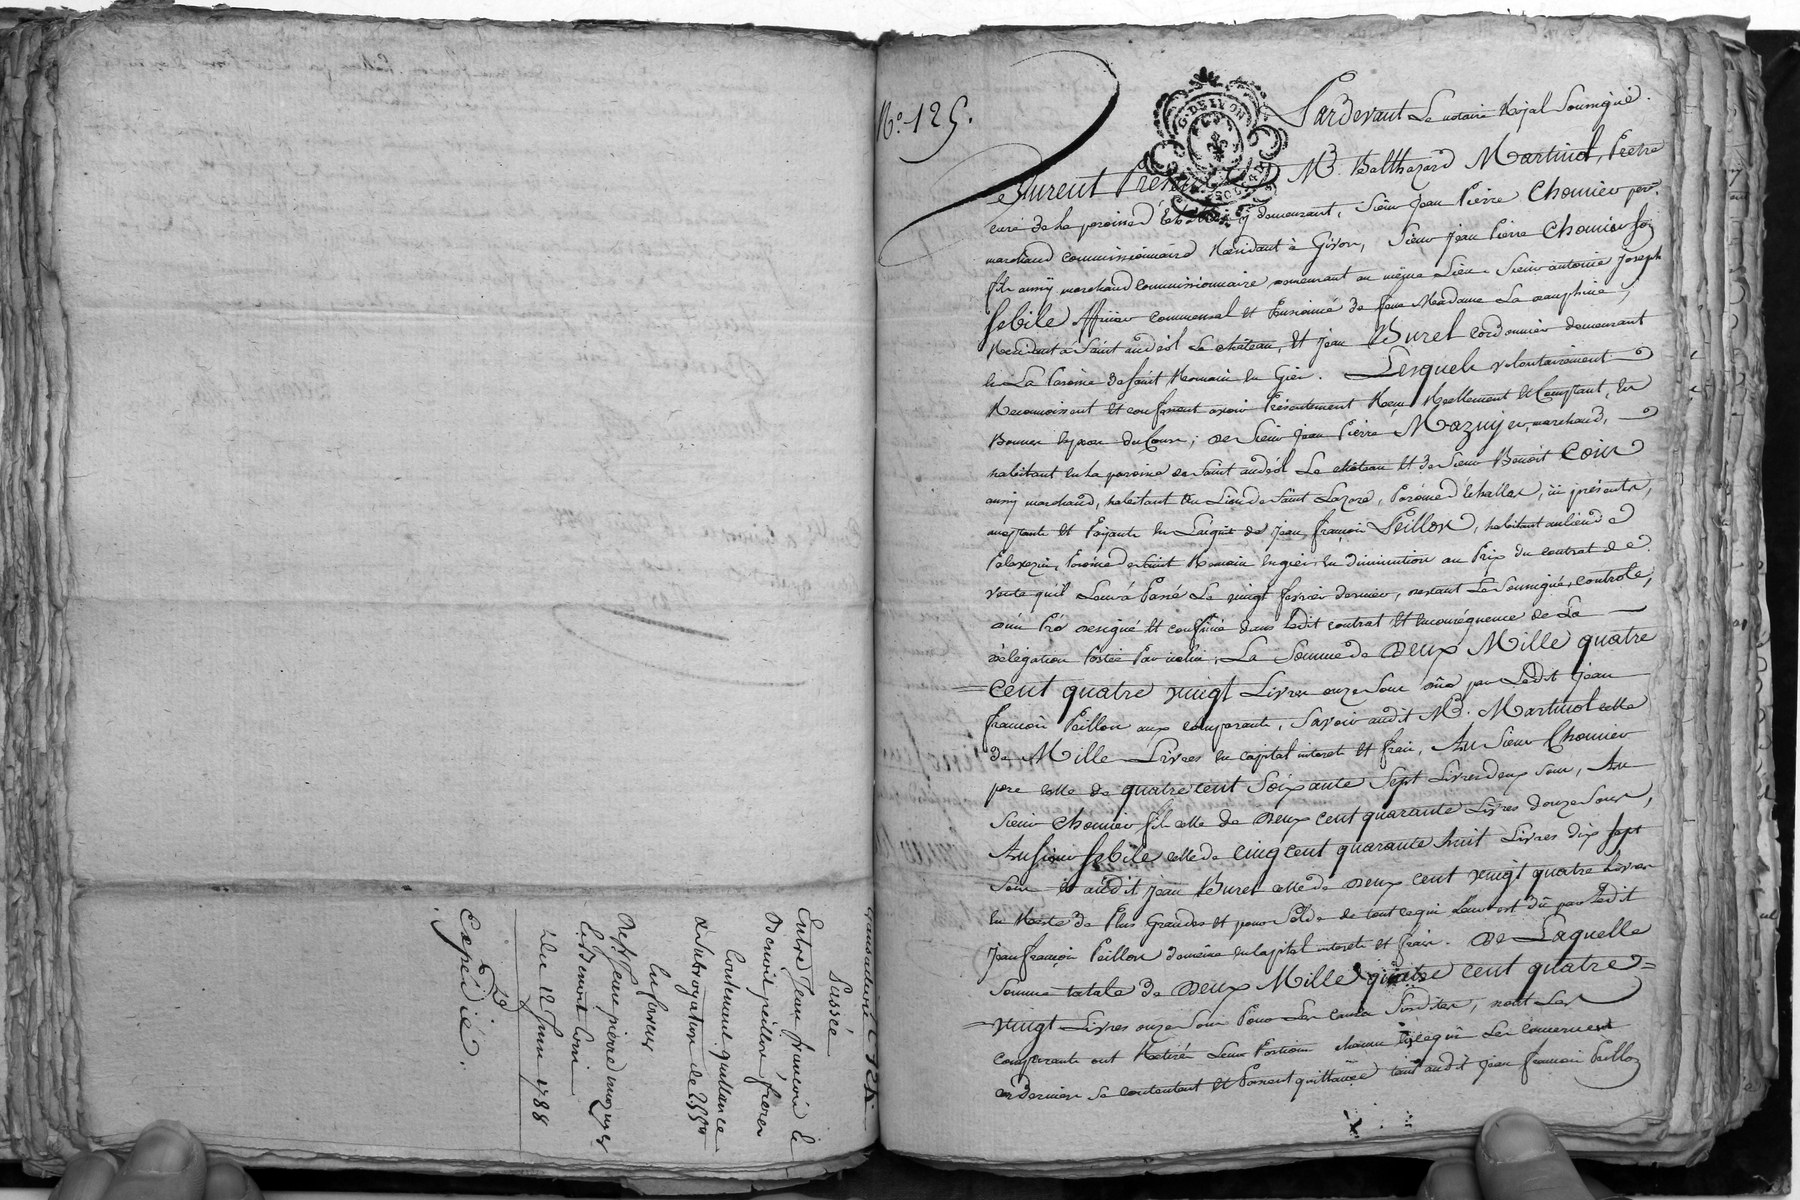 Transaction N° 124.
Passée
Entre Jean françois &
Benoit peillon freres
Contenant quittance
& subrogation de 255#
En faveur
De sr Jean pierre mazuyer
& sr Benoit Coin
Du 12 Juin 1788
Expédié.
N° 125.
G. DE LYON
Pardevant Le notaire Royal Soussigné.
Furent Présents Mre. Balthazard Martinol, Prêtre
curé de la paroisse d'Echallas y demeurant, Sieur Jean Pierre Chomier pere
marchand commissionnaire Residant à Givor, Sieur Jean Pierre Chomier
fils aussy marchand commissionnaire demeurant au même Lieu Sieur antoine Joseph
Sebile officier commensal et Pensionné de feue Madame La dauphine,
Residant à Saint andéol Le château, Et Jean Burel cordonnier demeurant
en La Paroisse de Saint Romain En Gier. Lesquels volontairement
Reconnoissent et confessent avoir Présentement Reçu Réellement et Comptant, En
Bonnes especes du Cours, de Sieur Jean Pierre Mazuyer, marchand,
habitant En La paroisse de Saint andéol Le château Et de Sieur Benoit Coin
aussy marchand, habitant Au Lieu de Saint Lazare, Paroisse d'Echallas, ici présents,
acceptants et Payants En L'acquit de Jean françois Peillon, habitant au lieu de
Paroisse de Saint Romain en gier En diminution du Prix du contrat de
vente qu'il Leur a Passé Le vingt fevrier dernier, devant Le Soussigné, controlé,
d'un Pré designé et confiné dans ledit contrat et En conséquence de La
délégation Portée Par icelui, La Somme de Deux Mille quatre
cent quatre vingt Livres onze Sous düe par Ledit Jean
françois Peillon aux comparants, Savoir audit Mre. Martinol celle
de Mille Livres en capital interet et frais, Au Sieur Chomier
pere celle de quatre cent Soixante Sept Livres deux Sous, Au
Sieur Chomier fils celle de Deux cent quarante Livres douze Sous,
Au Sieur Sebile celle de cinq cent quarante huit Livres dix sept
Sous Et audit Jean Burel celle de Deux cent vingt quatre Livres
En Reste de Plus Grandes et pour Solde de tout ce qui Leur est dû par Ledit
Jean françois Peillon En capital interets et frais. De Laquelle
Somme totale de Deux Mille quatre cent quatre
vingt Livres onze Sous Pour Les causes Susdites, dont Les
comparants ont Retiré Leur Portion chacun Les concernent
ces derniers Se contentent et Passent quittance tant audit Jean françois Peillon